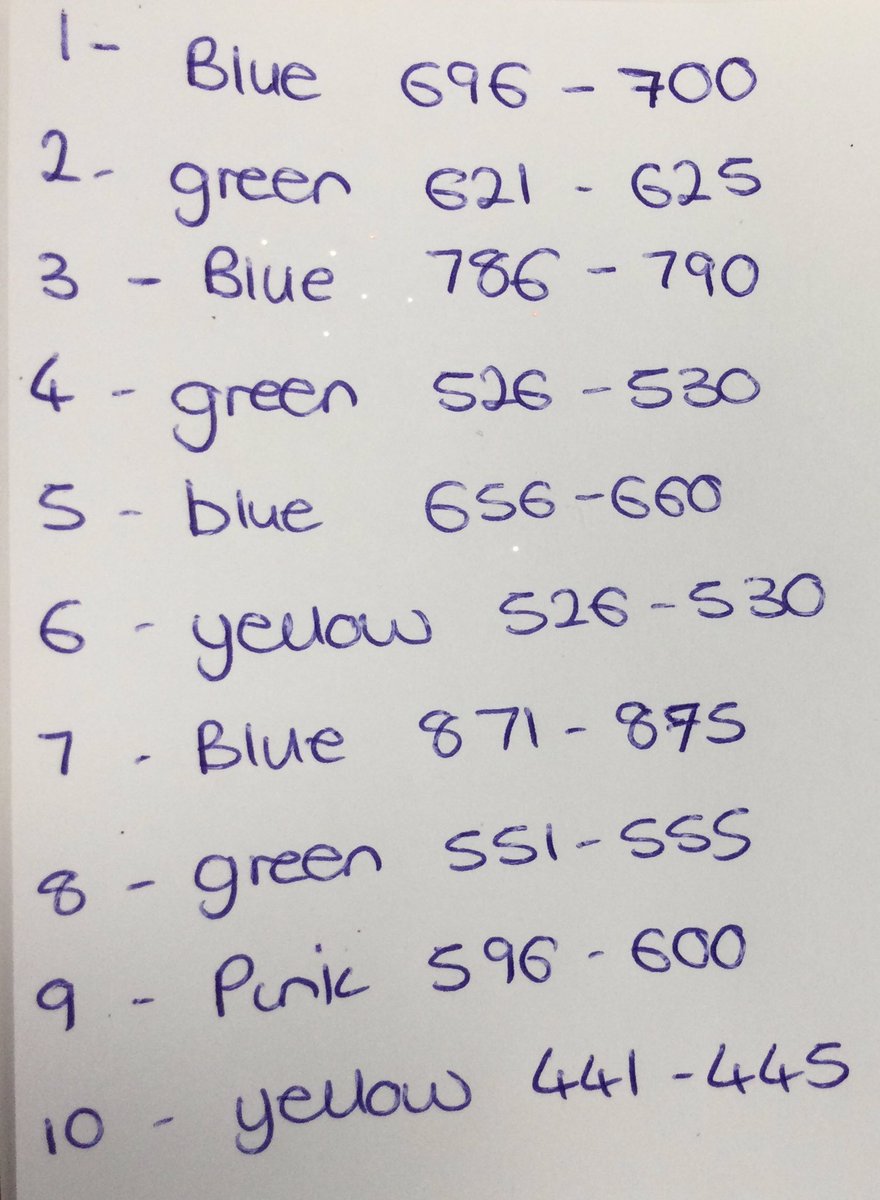 1- Blue 696 - 700
2- green 621 - 625
3 - Blue 786 - 790
4 - green 526 - 530
5 - blue 656 - 660
6 - yellow 526 - 530
7 - Blue 871 - 875
8 - green 551 - 555
9 - Pink 596 - 600
10 - yellow 441 - 445